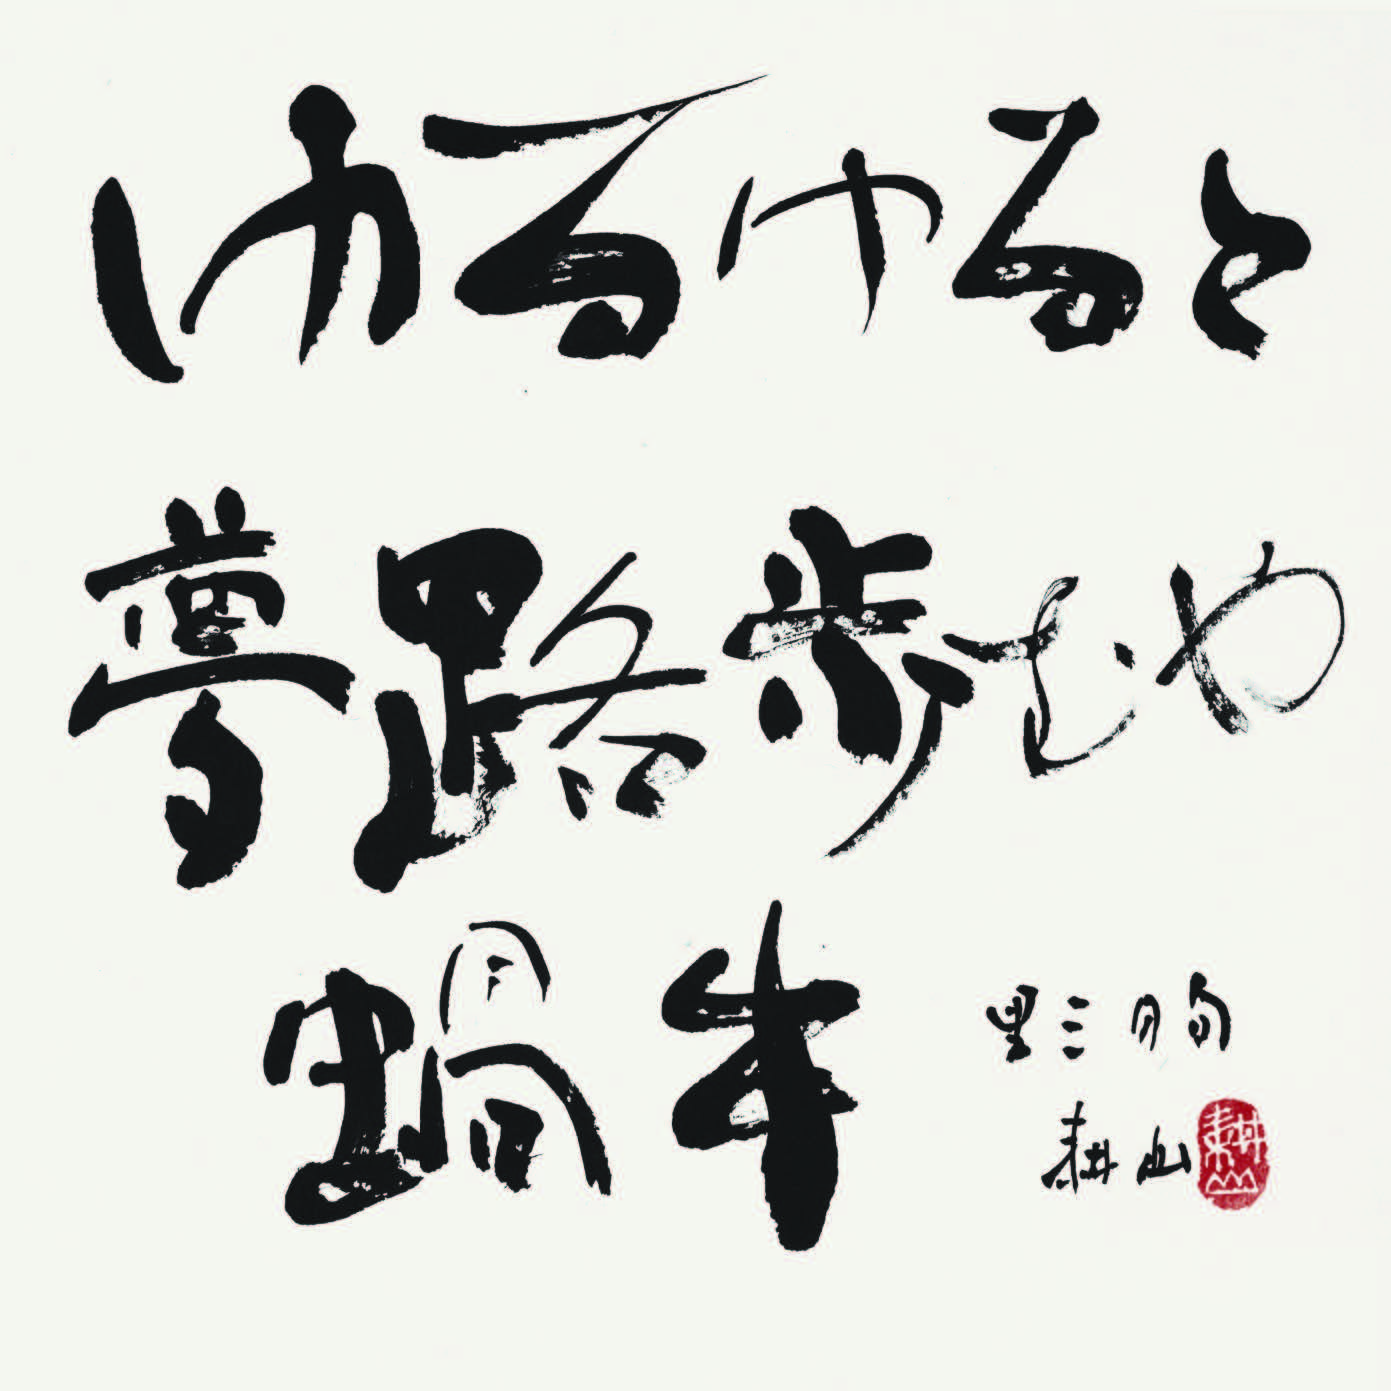 ゆるゆると
夢路歩むや
蝸牛
句
耕山
耕山